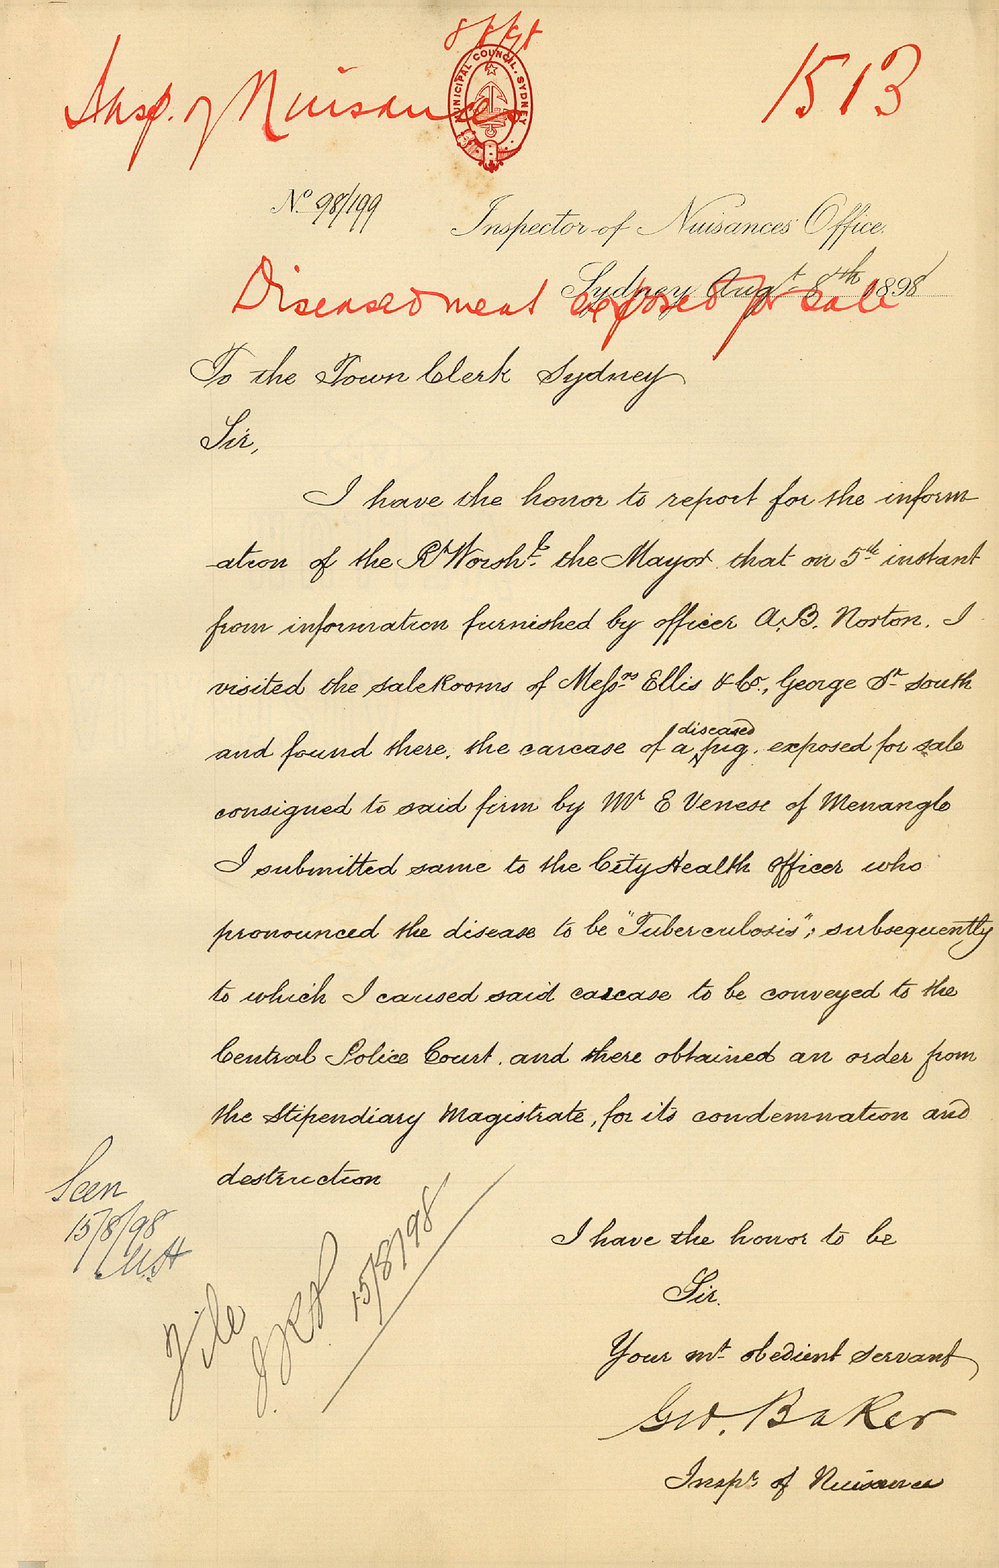 8/8/98
Insp. of Nuisances
1513
MUNICIPAL COUNCIL, SYDNEY
No 98/199
Inspector of Nuisances' Office.
Sydney Augt 8th 1898
Diseased meat exposed for sale
To the Town Clerk Sydney
Sir,
I have the honor to report for the inform-
ation of the Rt Worshl. the Mayor that on 5th instant
from information furnished by officer A. B. Norton, I
visited the salerooms of Messrs Ellis & Co., George St South
and found there, the carcase of a diseased pig, exposed for sale
consigned to said firm by Mr E Venese of Menangle
I submitted same to the City Health Officer who
pronounced the disease to be "Tuberculosis"; subsequently
to which I caused said carcase to be conveyed to the
Central Police Court, and there obtained an order from
the Stipendiary Magistrate, for its condemnation and
destruction
I have the honor to be
Sir.
Your mt obedient servant
Geo. Baker
Inspr of Nuisances
Seen
15/8/98
File
15/8/98